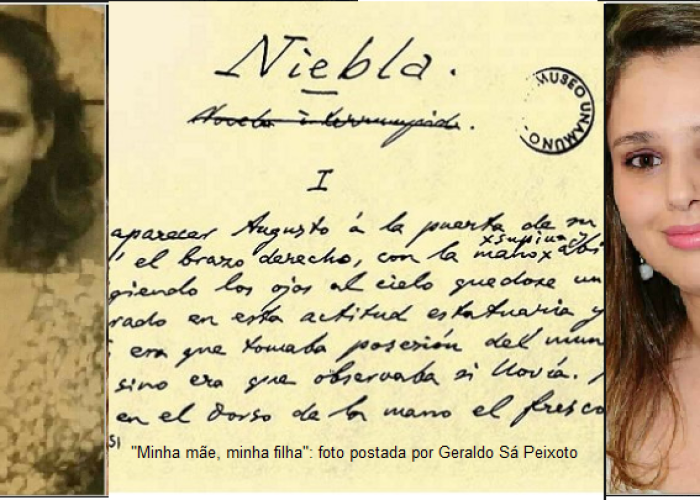 Niebla.
Novela interrumpida.
MUSEO UNAMUNO
I
aparecer Augusto á la puerta de su
xsupina y
el brazo derecho, con la manox abi
giendo los ojos al cielo quedose un
rado en esta actitud estatuaria y
era que tomaba posesión del mun
sino era que observaba si llovía.
en el dorso de la mano el fresco
SI
"Minha mãe, minha filha": foto postada por Geraldo Sá Peixoto